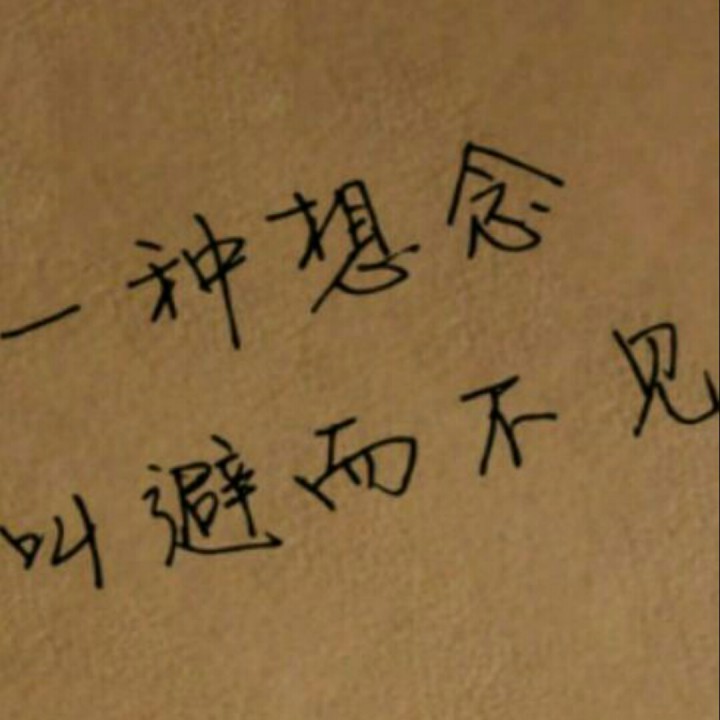 一种想念
叫避而不见